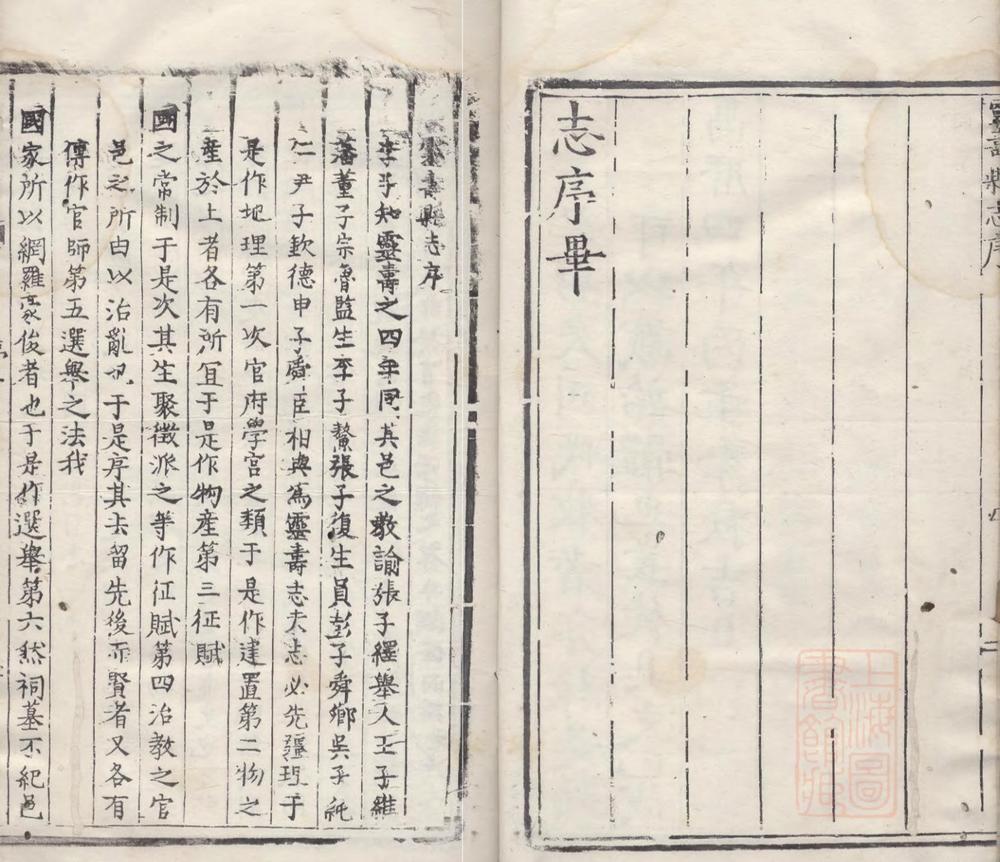 靈壽縣志序
志序畢
上海圖書館藏
靈壽縣志序
李子知靈壽之四年同其邑之教諭張子纒舉人王子維
藩董子宗魯監生李子鰲張子復生員彭子舜鄉吳子
仁尹子欽德申子舜臣相與爲靈壽志夫志必先彊理于
是作地理第一次官府學宮之類于是作建置第二物之
産於土者各有所宜于是作物産第三征賦
國之常制于是次其生聚徵派之等作征賦第四治教之官
邑之所由以治亂也于是序其去留先後而賢者又各有
傳作官師第五選舉之法我
國家所以網羅豪俊者也于是作選舉第六然祠墓不紀邑